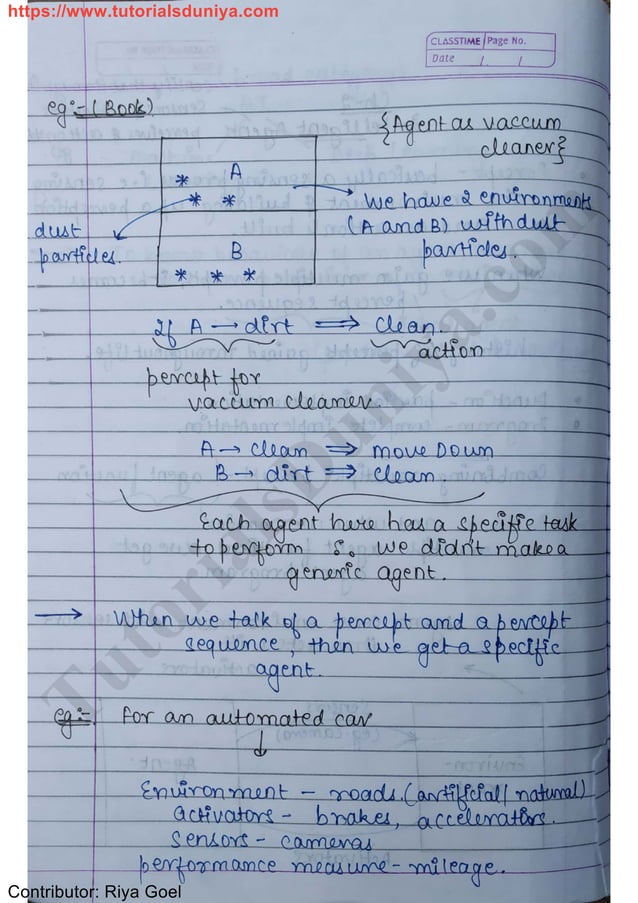 https://www.tutorialsduniya.com
CLASSTIME Page No.
Date / /
eg:- (Book)
{Agent as vaccum
cleaner}
A
* * *
We have 2 environments
(A and B) with dust
particles.
dust
particles.
B
* * *
If A → dirt ⟹ clean.
action
percept for
vaccum cleaner
A → clean ⟹ move Down
B → dirt ⟹ clean.
Each agent here has a specific task
to perform So we didn't make a
generic agent.
→ When we talk of a percept and a percept
sequence, then we get a specific
agent.
eg:- For an automated car
↓
Environment - roads. (artificial/ natural)
activators - brakes, accelerators.
sensors - cameras
performance measure - mileage.
TutorialsDuniya.com
Contributor: Riya Goel